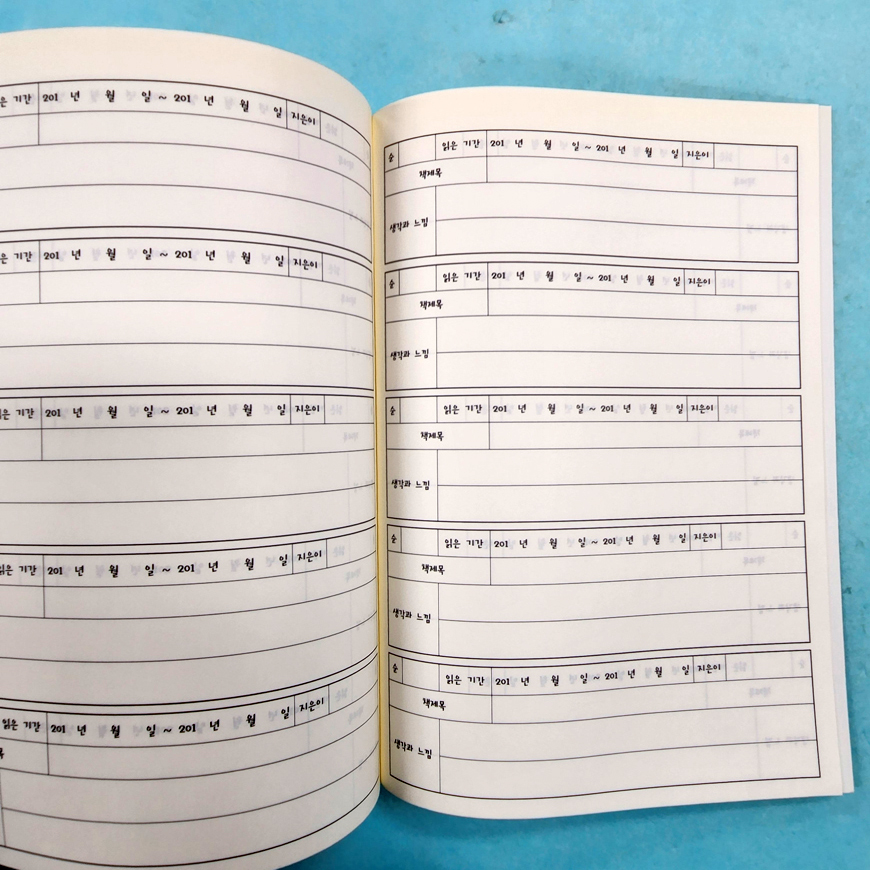 은 기간 201 년 월 일 ~ 201 년 월 일 지은이
은 기간 201 년 월 일 ~ 201 년 월 일 지은이
은 기간 201 년 월 일 ~ 201 년 월 일 지은이
읽은 기간 201 년 월 일 ~ 201 년 월 일 지은이
읽은 기간 201 년 월 일 ~ 201 년 월 일 지은이
목
순 읽은 기간 201 년 월 일 ~ 201 년 월 일 지은이
책제목
생각과 느낌
순 읽은 기간 201 년 월 일 ~ 201 년 월 일 지은이
책제목
생각과 느낌
순 읽은 기간 201 년 월 일 ~ 201 년 월 일 지은이
책제목
생각과 느낌
순 읽은 기간 201 년 월 일 ~ 201 년 월 일 지은이
책제목
생각과 느낌
순 읽은 기간 201 년 월 일 ~ 201 년 월 일 지은이
책제목
생각과 느낌